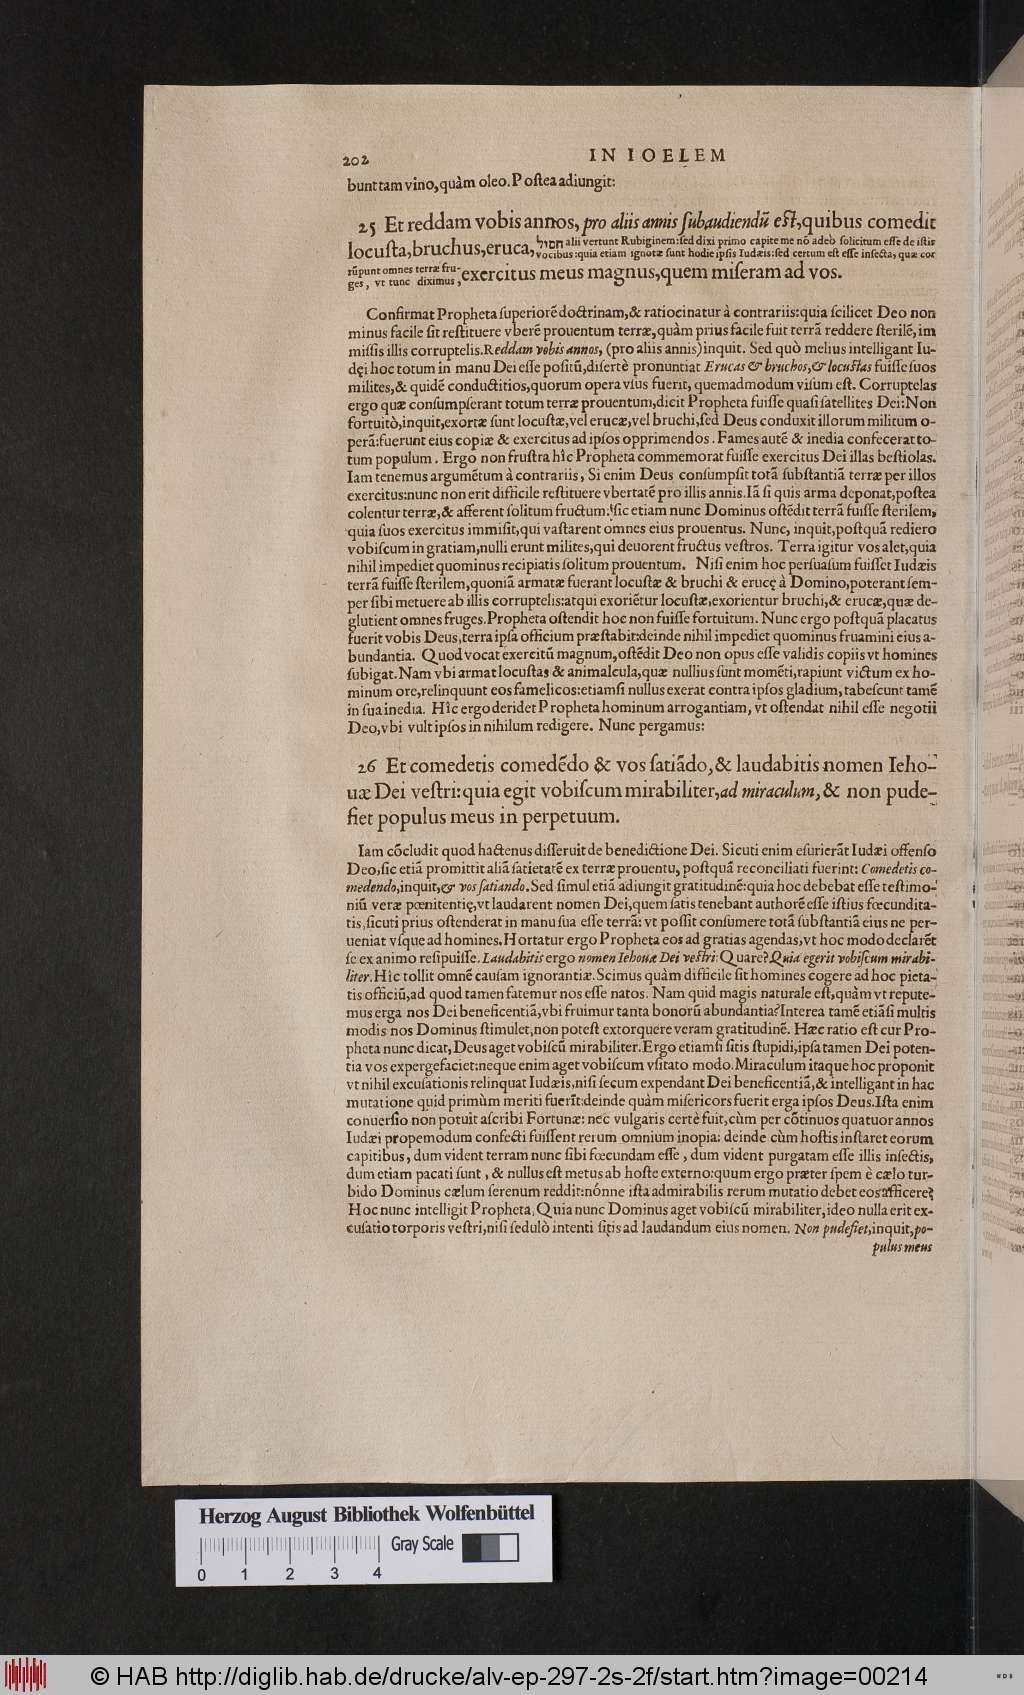 202
IN IOELEM
bunt tam vino, quàm oleo. Postea adiungit:
25 Et reddam vobis annos, pro aliis annis subaudiendū est, quibus comedit
locusta, bruchus, eruca, חסיל alii vertunt Rubiginem: sed dixi primo capite me nō adeò solicitum esse de istis
vocibus: quia etiam ignotæ sunt hodie ipsis Iudæis: sed certum est esse insecta, quæ cor
rūpunt omnes terræ fru-
ges, vt tunc diximus, exercitus meus magnus, quem miseram ad vos.
Confirmat Propheta superiorē doctrinam, & ratiocinatur à contrariis: quia scilicet Deo non
minus facile sit restituere vberē prouentum terræ, quàm prius facile fuit terrā reddere sterilē, im
missis illis corruptelis. Reddam vobis annos, (pro aliis annis) inquit. Sed quò melius intelligant Iu-
dęi hoc totum in manu Dei esse positū, disertè pronuntiat Erucas & bruchos, & locustas fuisse suos
milites, & quidē conductitios, quorum opera vsus fuerit, quemadmodum visum est. Corruptelas
ergo quæ consumpserant totum terræ prouentum, dicit Propheta fuisse quasi satellites Dei: Non
fortuitò, inquit, exortæ sunt locustæ, vel erucæ, vel bruchi, sed Deus conduxit illorum militum o-
perā: fuerunt eius copiæ & exercitus ad ipsos opprimendos. Fames autē & inedia confecerat to-
tum populum. Ergo non frustra hîc Propheta commemorat fuisse exercitus Dei illas bestiolas.
Iam tenemus argumētum à contrariis, Si enim Deus consumpsit totā substantiā terræ per illos
exercitus: nunc non erit difficile restituere vbertatē pro illis annis. Iā si quis arma deponat, postea
colentur terræ, & afferent solitum fructum: sic etiam nunc Dominus ostēdit terrā fuisse sterilem,
quia suos exercitus immisit, qui vastarent omnes eius prouentus. Nunc, inquit, postquā rediero
vobiscum in gratiam, nulli erunt milites, qui deuorent fructus vestros. Terra igitur vos alet, quia
nihil impediet quominus recipiatis solitum prouentum. Nisi enim hoc persuasum fuisset Iudæis
terrā fuisse sterilem, quoniā armatæ fuerant locustæ & bruchi & erucę à Domino, poterant sem-
per sibi metuere ab illis corruptelis: atqui exoriētur locustæ, exorientur bruchi, & erucæ, quæ de-
glutient omnes fruges. Propheta ostendit hoc non fuisse fortuitum. Nunc ergo postquā placatus
fuerit vobis Deus, terra ipsa officium præstabit: deinde nihil impediet quominus fruamini eius a-
bundantia. Quod vocat exercitū magnum, ostēdit Deo non opus esse validis copiis vt homines
subigat. Nam vbi armat locustas & animalcula, quæ nullius sunt momēti, rapiunt victum ex ho-
minum ore, relinquunt eos famelicos: etiamsi nullus exerat contra ipsos gladium, tabescunt tamē
in sua inedia. Hîc ergo deridet Propheta hominum arrogantiam, vt ostendat nihil esse negotii
Deo, vbi vult ipsos in nihilum redigere. Nunc pergamus:
26 Et comedetis comedēdo & vos satiādo, & laudabitis nomen Ieho-
uæ Dei vestri: quia egit vobiscum mirabiliter, ad miraculum, & non pude-
fiet populus meus in perpetuum.
Iam cōcludit quod hactenus disseruit de benedictione Dei. Sicuti enim esurierāt Iudæi offenso
Deo, sic etiā promittit aliā satietatē ex terræ prouentu, postquā reconciliati fuerint: Comedetis co-
medendo, inquit, & vos satiando. Sed simul etiā adiungit gratitudinē: quia hoc debebat esse testimo-
niū veræ pœnitentię, vt laudarent nomen Dei, quem satis tenebant authorē esse istius fœcundita-
tis, sicuti prius ostenderat in manu sua esse terrā: vt possit consumere totā substantiā eius ne per-
ueniat vsque ad homines. Hortatur ergo Propheta eos ad gratias agendas, vt hoc modo declarēt
se ex animo resipuisse. Laudabitis ergo nomen Iehouæ Dei vestri: Quare? Quia egerit vobiscum mirabi-
liter. Hîc tollit omnē causam ignorantiæ. Scimus quàm difficile sit homines cogere ad hoc pieta-
tis officiū, ad quod tamen fatemur nos esse natos. Nam quid magis naturale est, quàm vt repute-
mus erga nos Dei beneficentiā, vbi fruimur tanta bonorū abundantia? Interea tamē etiāsi multis
modis nos Dominus stimulet, non potest extorquere veram gratitudinē. Hæc ratio est cur Pro-
pheta nunc dicat, Deus aget vobiscū mirabiliter. Ergo etiamsi sitis stupidi, ipsa tamen Dei poten-
tia vos expergefaciet: neque enim aget vobiscum vsitato modo. Miraculum itaque hoc proponit
vt nihil excusationis relinquat Iudæis, nisi secum expendant Dei beneficentiā, & intelligant in hac
mutatione quid primùm meriti fuerīt: deinde quàm misericors fuerit erga ipsos Deus. Ista enim
conuersio non potuit ascribi Fortunæ: nec vulgaris certè fuit, cùm per cōtinuos quatuor annos
Iudæi propemodum confecti fuissent rerum omnium inopia: deinde cùm hostis instaret eorum
capitibus, dum vident terram nunc sibi fœcundam esse, dum vident purgatam esse illis insectis,
dum etiam pacati sunt, & nullus est metus ab hoste externo: quum ergo præter spem è cælo tur-
bido Dominus cælum serenum reddit: nónne ista admirabilis rerum mutatio debet eos afficere?
Hoc nunc intelligit Propheta, Quia nunc Dominus aget vobiscū mirabiliter, ideo nulla erit ex-
cusatio torporis vestri, nisi sedulò intenti sitis ad laudandum eius nomen. Non pudefiet, inquit, po-
pulus meus
Herzog August Bibliothek Wolfenbüttel
Gray Scale
0 1 2 3 4
© HAB http://diglib.hab.de/drucke/alv-ep-297-2s-2f/start.htm?image=00214